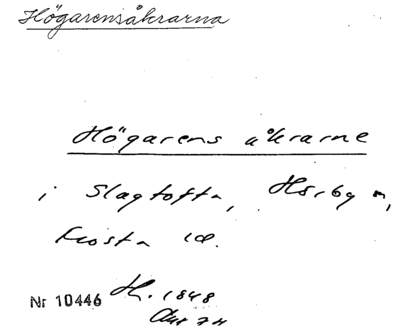 Högarensåkrarna
Högarens åkrarne
i Slagtofta, Hörby s,
Frosta hd.
Nr 10446 H. 1848